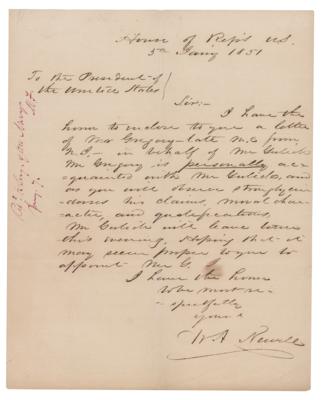 House of Rep's U.S.
5th Jan'y 1851
To the President of
the United States
Sir:-
I have the
honor to enclose to you a letter
of Mr Gregory - late M.C. from
N.J. - in behalf of Mr Gulick
Mr Gregory is personally ac-
quainted with Mr Gulick, and
as you will observe strongly en-
dorses his claims, moral char-
acter, and qualifications.
Mr Gulick will leave here
this evening. Hoping that it
may seem proper to you to
appoint Mr G.
I have the honor
to be most re-
spectfully
yours
W A Newell
Navy
Jany 7.